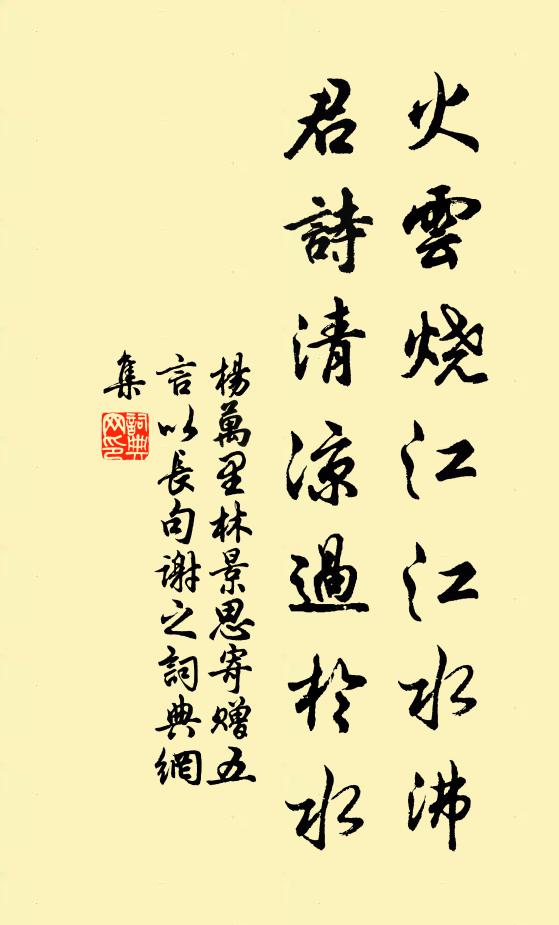 火雲烧江江水沸
君詩清凉過於水
楊萬里林景思寄贈五
言以長句谢之詞典網
集
詞典
网印